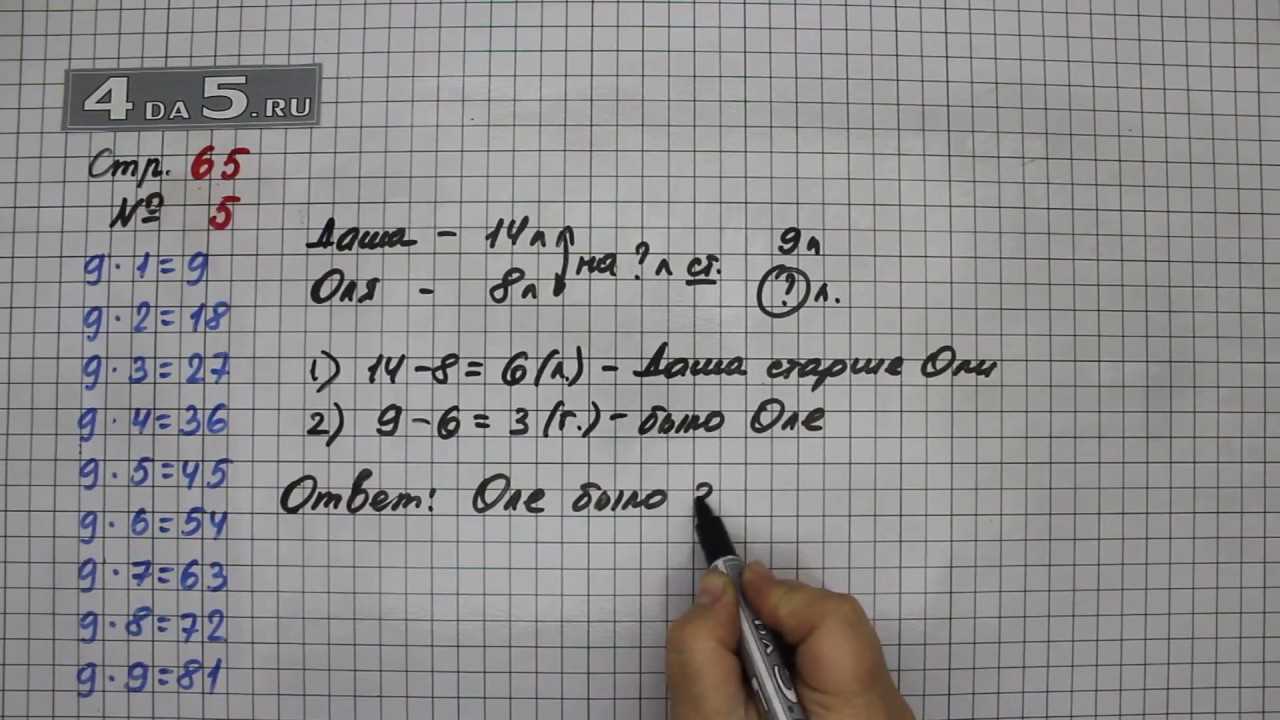 4DA5.RU
Стр. 65
№ 5
9·1=9
9·2=18
9·3=27
9·4=36
9·5=45
9·6=54
9·7=63
9·8=72
9·9=81
Даша - 14л на ? л ст. 9л
Оля - 8л ? л.
1) 14-8= 6 (л.) - Даша старше Оли
2) 9-6= 3 (г.) - было Оле
Ответ: Оле было
DA 5